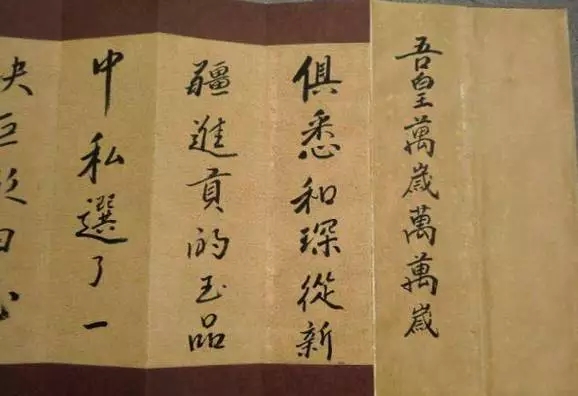 吾皇萬歲萬萬歲
俱悉和琛從新
疆進貢的玉品
中私選了一